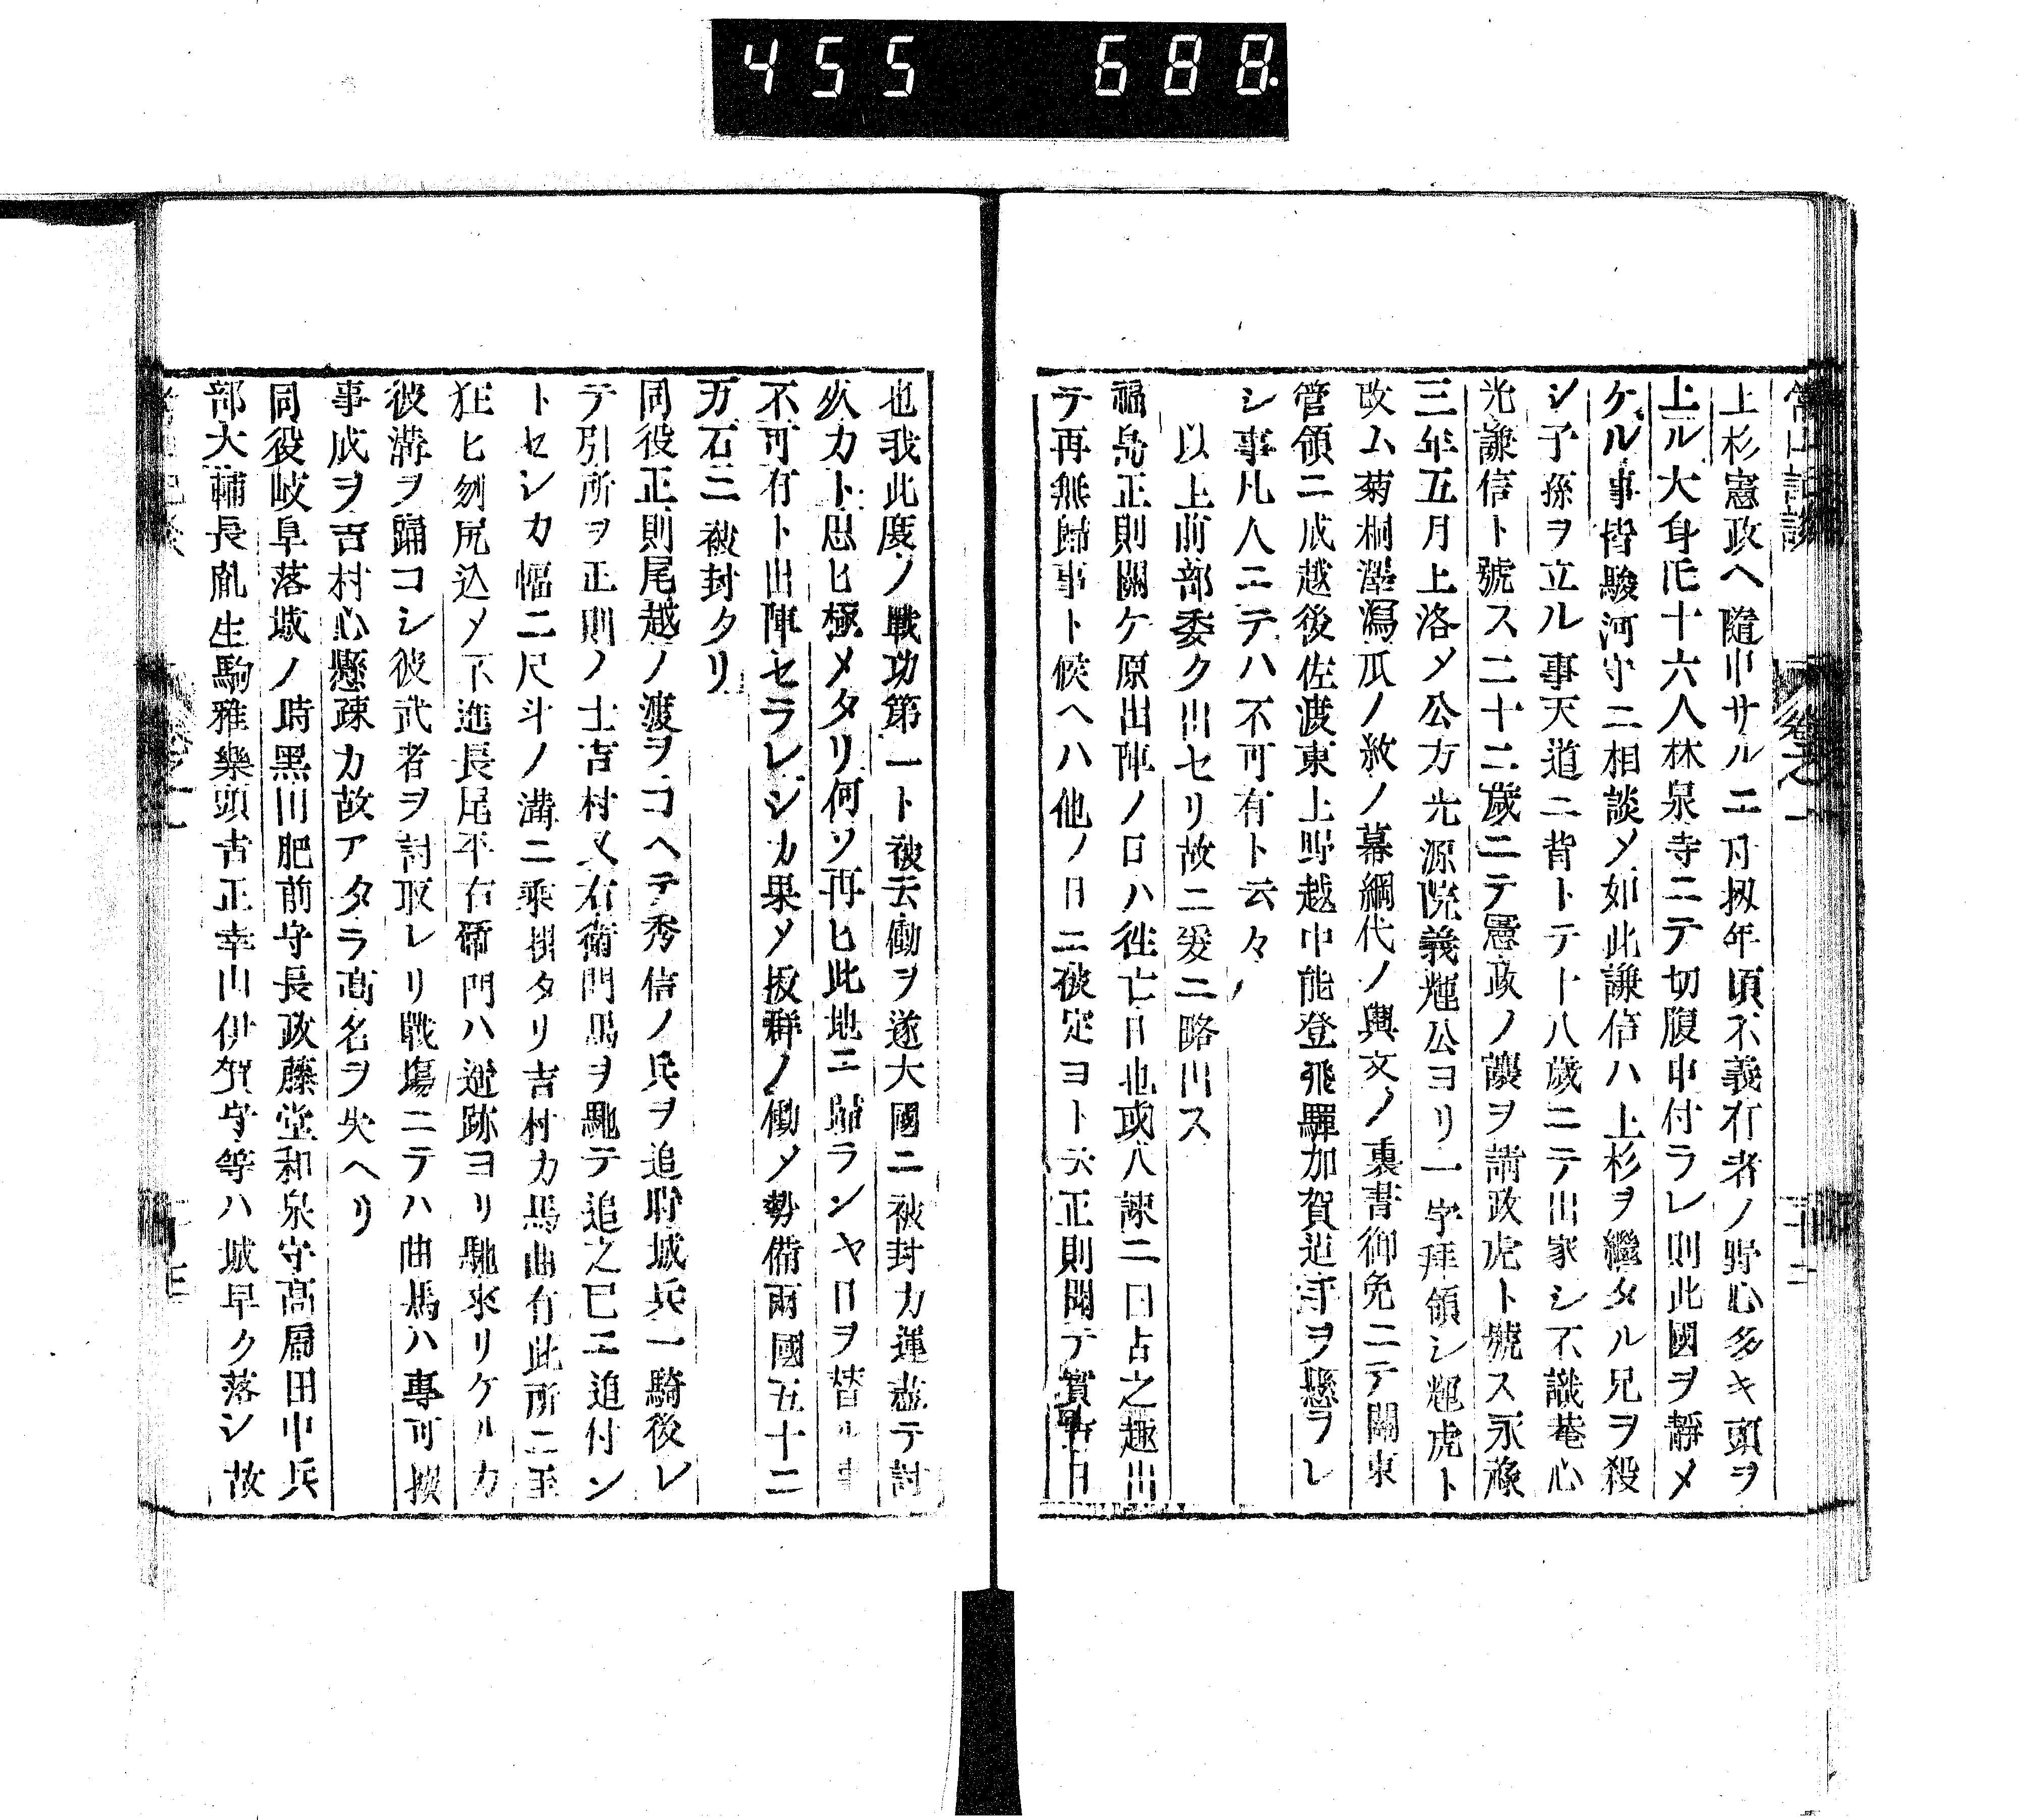 455 688.
上杉憲政ヘ隨申サルニ付扨年頃不義有者ノ野心多キ頭ヲ
上ル大身氏十六人林泉寺ニテ切腹申付ラレ則此國ヲ靜メ
ケル事皆駿河守ニ相談メ如此謙信ハ上杉ヲ繼タル兄ヲ殺
シ子孫ヲ立ル事天道ニ背トテ十八歲ニテ出家シ不識菴心
光謙信ト號ス二十二歲ニテ憲政ノ讓ヲ請政虎ト號ス永祿
三年五月上洛メ公方光源院義輝公ヨリ一字拜領シ輝虎ト
改ム菊桐澤瀉瓜ノ紋ノ幕綱代ノ輿文ノ裏書御免ニテ關東
管領ニ成越後佐渡東上野越中能登飛驒加賀迠守ヲ懸ヲレ
シ事凡人ニテハ不可有ト云々
以上前部委ク出セリ故ニ爰ニ略出ス
福嶌正則關ケ原出陣ノ日ハ徃亡日也或人諫ニ曰占之趣出
テ再無歸事ト候ヘハ他ノ日ニ被定ヨト云正則聞テ實吉日
也我此度ノ戰功第一ト被云働ヲ遂大國ニ被封カ運盡テ討
死カト思ヒ極メタリ何ソ再ヒ此地ニ歸ランヤ日ヲ替ル事
不可有ト出陣セラレシカ果メ拔群ノ働メ勢備兩國五十二
万石ニ被封タリ
同役正則尾越ノ渡ヲコヘテ秀信ノ兵ヲ追時城兵一騎後レ
テ引所ヲ正則ノ士吉村又右衛門馬ヲ馳テ追之已ニ追付ン
トセシカ幅二尺斗ノ溝ニ乘掛タリ吉村カ馬曲有此所ニ至
狂ヒ刎尻込メ不進長尾平右衛門ハ遊跡ヨリ馳來リケルカ
彼溝ヲ踊コシ彼武者ヲ討取レリ戰塲ニテハ曲馬ハ專可撰
事成ヲ吉村心懸疎カ故アタラ高名ヲ失ヘリ
同役岐阜落城ノ時黑川肥前守長政藤堂和泉守高虎田中兵
部大輔長胤生駒雅樂頭吉正幸山伊賀守等ハ城早ク落シ故